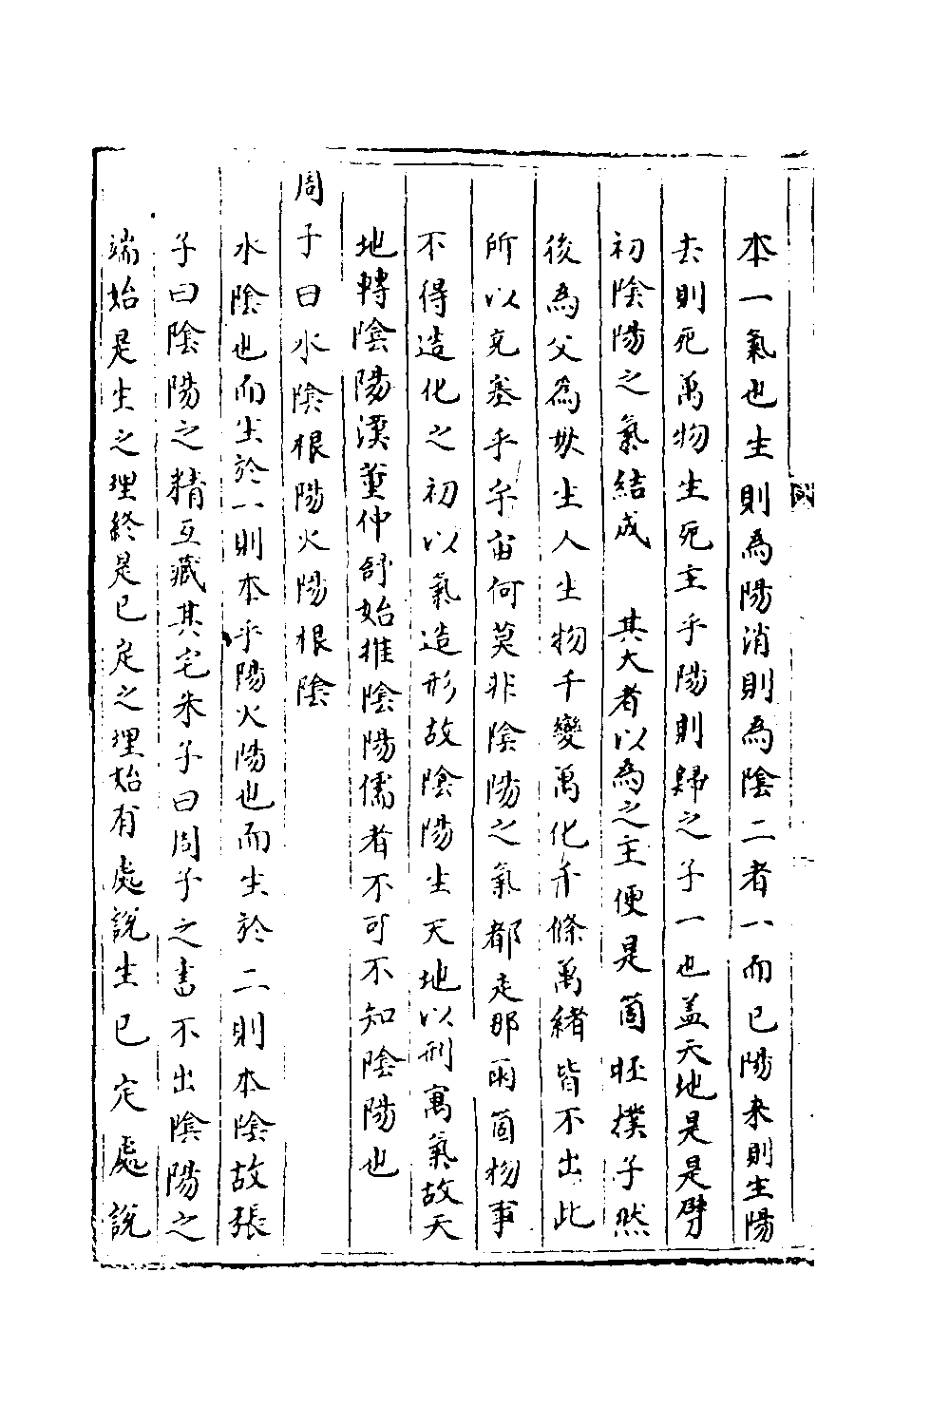 本一氣也生則為陽消則為陰二者一而已陽来則生陽
去則死萬物生死主乎陽則歸之子一也盖天地是是劈
初陰陽之氣結成　其大者以為之主便是箇胚撲子然
後為父為母生人生物千變萬化千條萬緒皆不出此
所以充塞乎宇宙何莫非陰陽之氣都走那兩箇物事
不得造化之初以氣造形故陰陽生天地以刑寓氣故天
地轉陰陽漢董仲舒始推陰陽儒者不可不知陰陽也
周子曰水陰根陽火陽根陰
水陰也而生於一則本乎陽火陽也而生於二則本陰故張
子曰陰陽之精互藏其宅朱子曰周子之書不出陰陽之
端始是生之理終是已定之理始有處說生已定處說